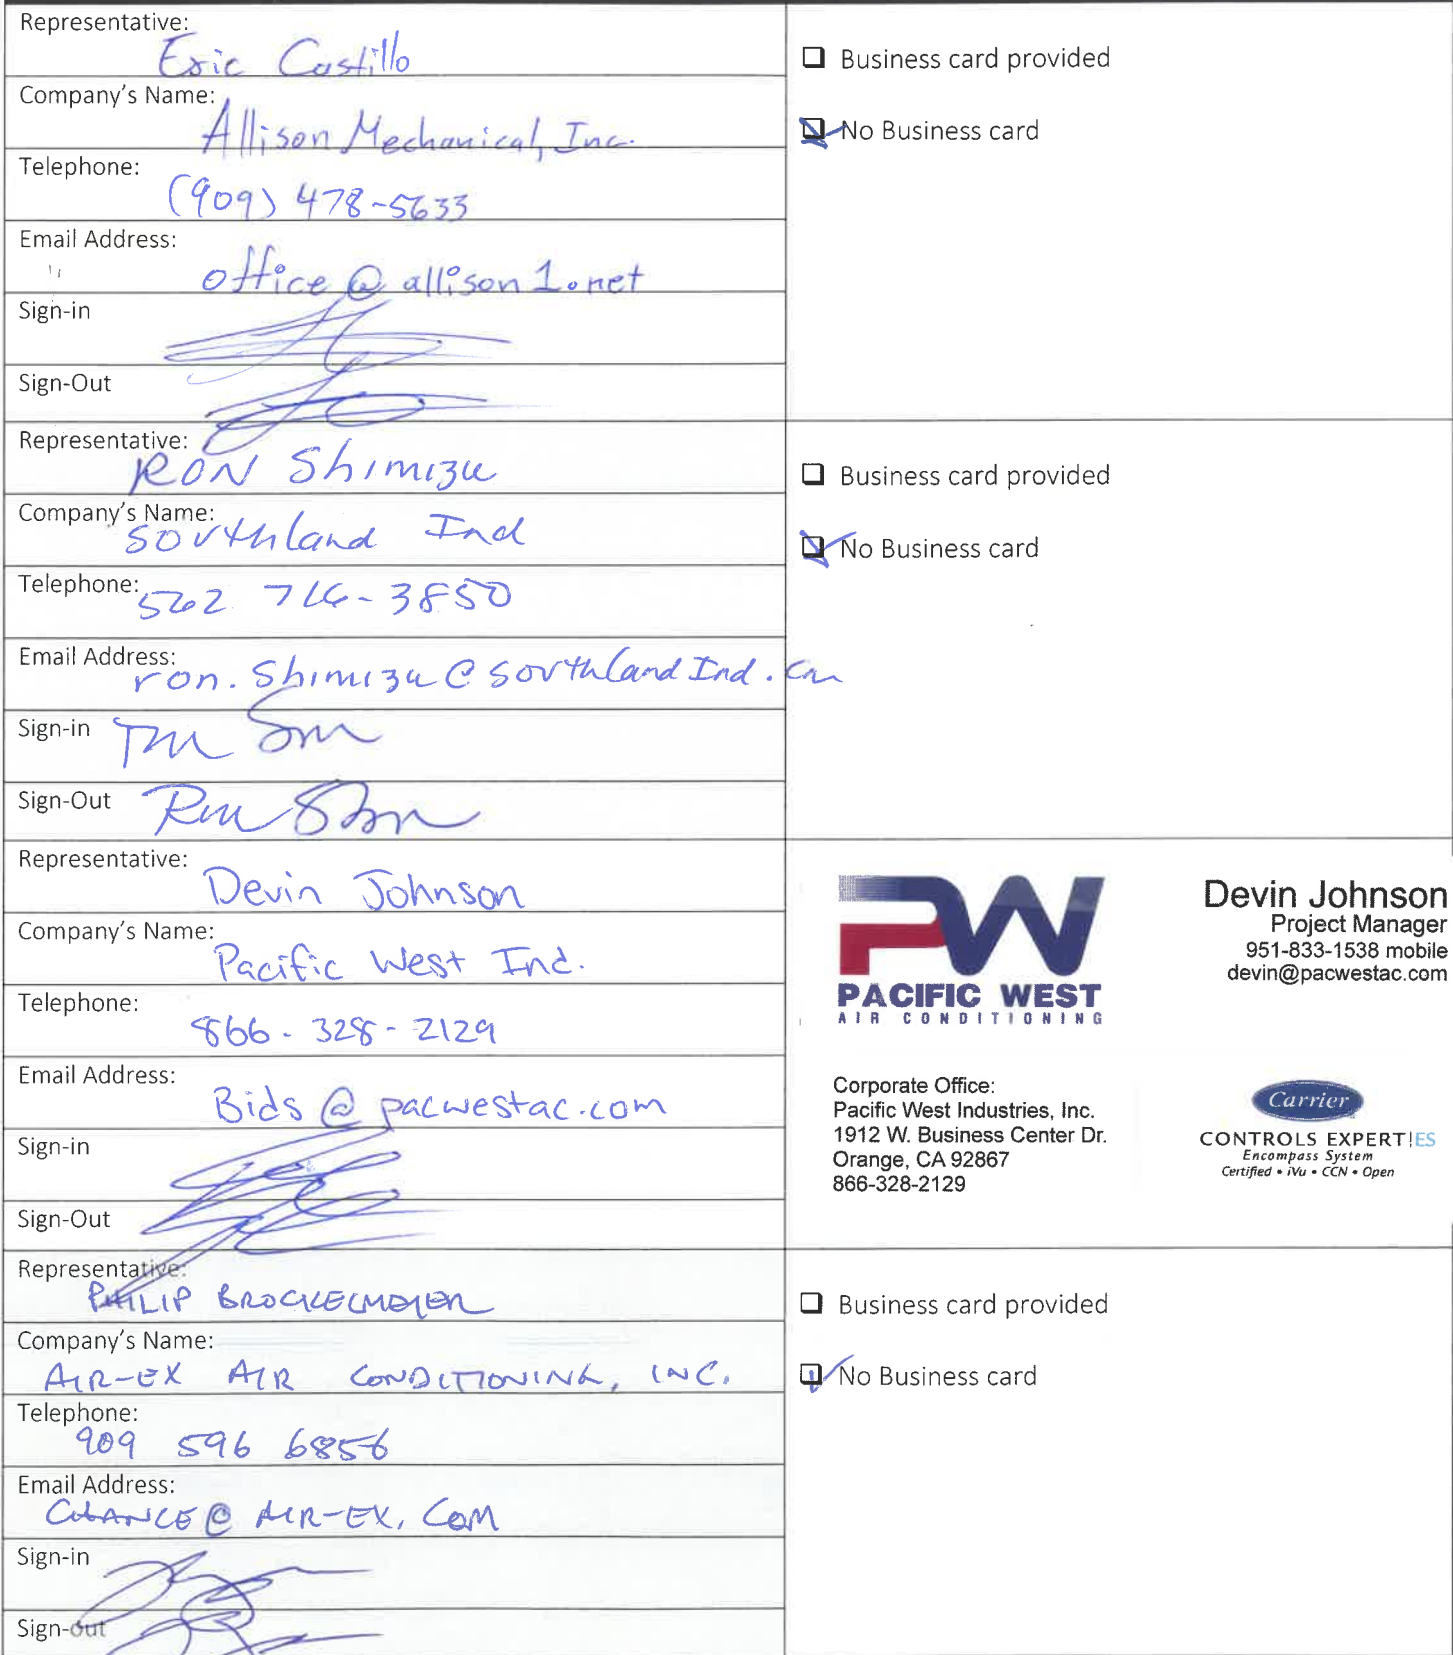 Representative:
Eric Castillo
Company's Name:
Allison Mechanical, Inc.
Telephone:
(909) 478-5633
Email Address:
office@allison1.net
Sign-in
Sign-Out
☐ Business card provided
☑ No Business card
Representative:
RON Shimizu
Company's Name:
Southland Ind
Telephone:
562 716-3850
Email Address:
ron.Shimizu@southlandInd.com
Sign-in
Sign-Out
☐ Business card provided
☑ No Business card
Representative:
Devin Johnson
Company's Name:
Pacific West Ind.
Telephone:
866-328-2129
Email Address:
Bids@pacwestac.com
Sign-in
Sign-Out
PW
PACIFIC WEST
AIR CONDITIONING
Devin Johnson
Project Manager
951-833-1538 mobile
devin@pacwestac.com
Corporate Office:
Pacific West Industries, Inc.
1912 W. Business Center Dr.
Orange, CA 92867
866-328-2129
Carrier
CONTROLS EXPERT!ES
Encompass System
Certified • iVu • CCN • Open
Representative:
PHILIP BROCKELMEYER
Company's Name:
AIR-EX AIR CONDITIONING, INC.
Telephone:
909 596 6856
Email Address:
CHANCE@AIR-EX.COM
Sign-in
Sign-out
☐ Business card provided
☑ No Business card